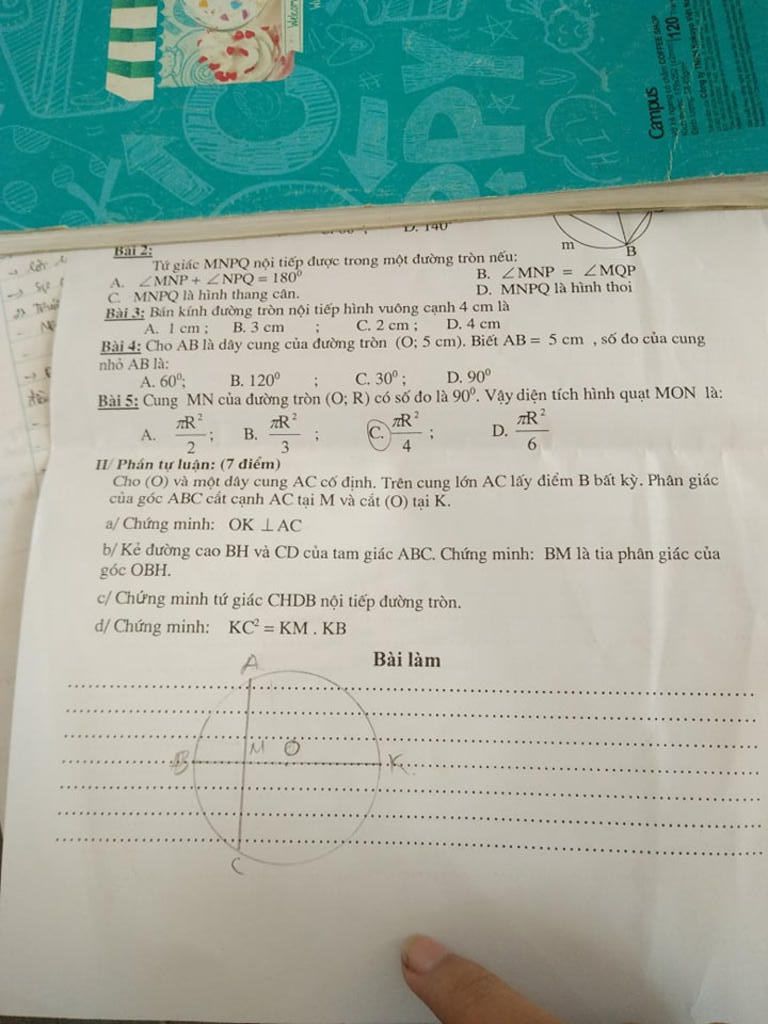 Welcom
Campus
COFFEE SHOP
120
D. 140°
m
B
Bài 2:
Tứ giác MNPQ nội tiếp được trong một đường tròn nếu:
A. ∠MNP + ∠NPQ = 180⁰ B. ∠MNP = ∠MQP
C. MNPQ là hình thang cân. D. MNPQ là hình thoi
Bài 3: Bán kính đường tròn nội tiếp hình vuông cạnh 4 cm là
A. 1 cm ; B. 3 cm ; C. 2 cm ; D. 4 cm
Bài 4: Cho AB là dây cung của đường tròn (O; 5 cm). Biết AB = 5 cm , số đo của cung
nhỏ AB là:
A. 60⁰; B. 120⁰ ; C. 30⁰ ; D. 90⁰
Bài 5: Cung MN của đường tròn (O; R) có số đo là 90⁰. Vậy diện tích hình quạt MON là:
A. πR²/2 ; B. πR²/3 ; C. πR²/4 ; D. πR²/6
II/ Phần tự luận: (7 điểm)
Cho (O) và một dây cung AC cố định. Trên cung lớn AC lấy điểm B bất kỳ. Phân giác
của góc ABC cắt cạnh AC tại M và cắt (O) tại K.
a/ Chứng minh: OK ⊥ AC
b/ Kẻ đường cao BH và CD của tam giác ABC. Chứng minh: BM là tia phân giác của
góc OBH.
c/ Chứng minh tứ giác CHDB nội tiếp đường tròn.
d/ Chứng minh: KC² = KM . KB
Bài làm
A
B M O K
C